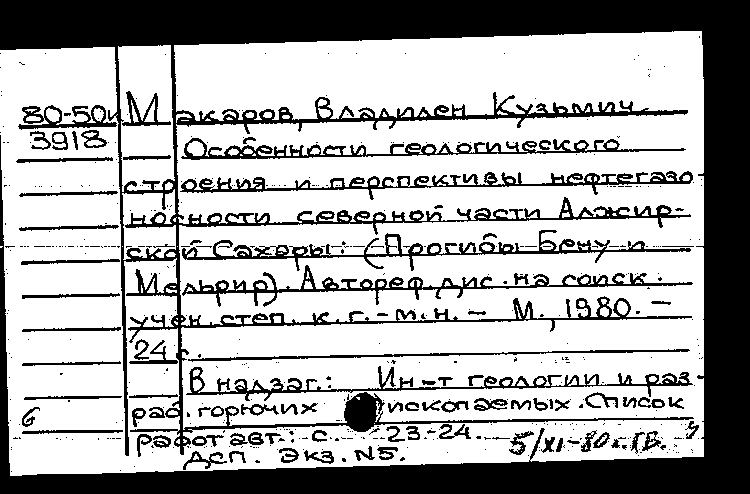 80-50и Макаров, Владилен Кузьмич.
3918 Особенности геологического
строения и перспективы нефтегазо-
носности северной части Алжир-
ской Сахары: (Прогибы Бену и
Мельрир). Автореф. дис. на соиск.
учен. степ. к. г.-м. н. - М., 1980. -
24 с.
В надзаг.: Ин-т геологии и раз-
раб. горючих ископаемых. Список
работ авт.: с. 23-24.
ДСП. Экз. N5. 5/XI-80г.